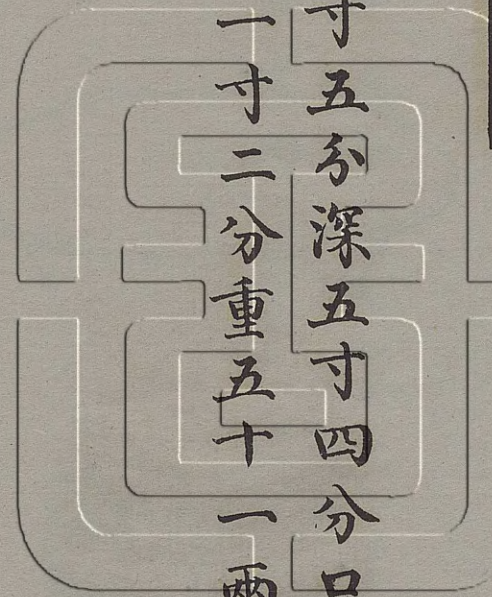 寸五分深五寸四分口
一寸二分重五十一兩